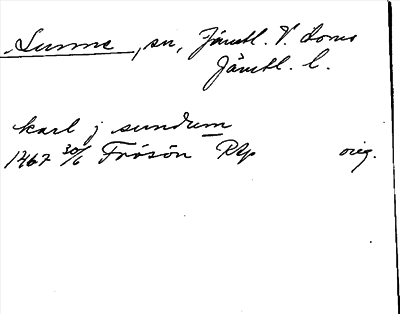 Sunne, sn, Jämtl. V. doms
Jämtl. l.
karl j sundum
1467 30/6 Frösön RAp orig.